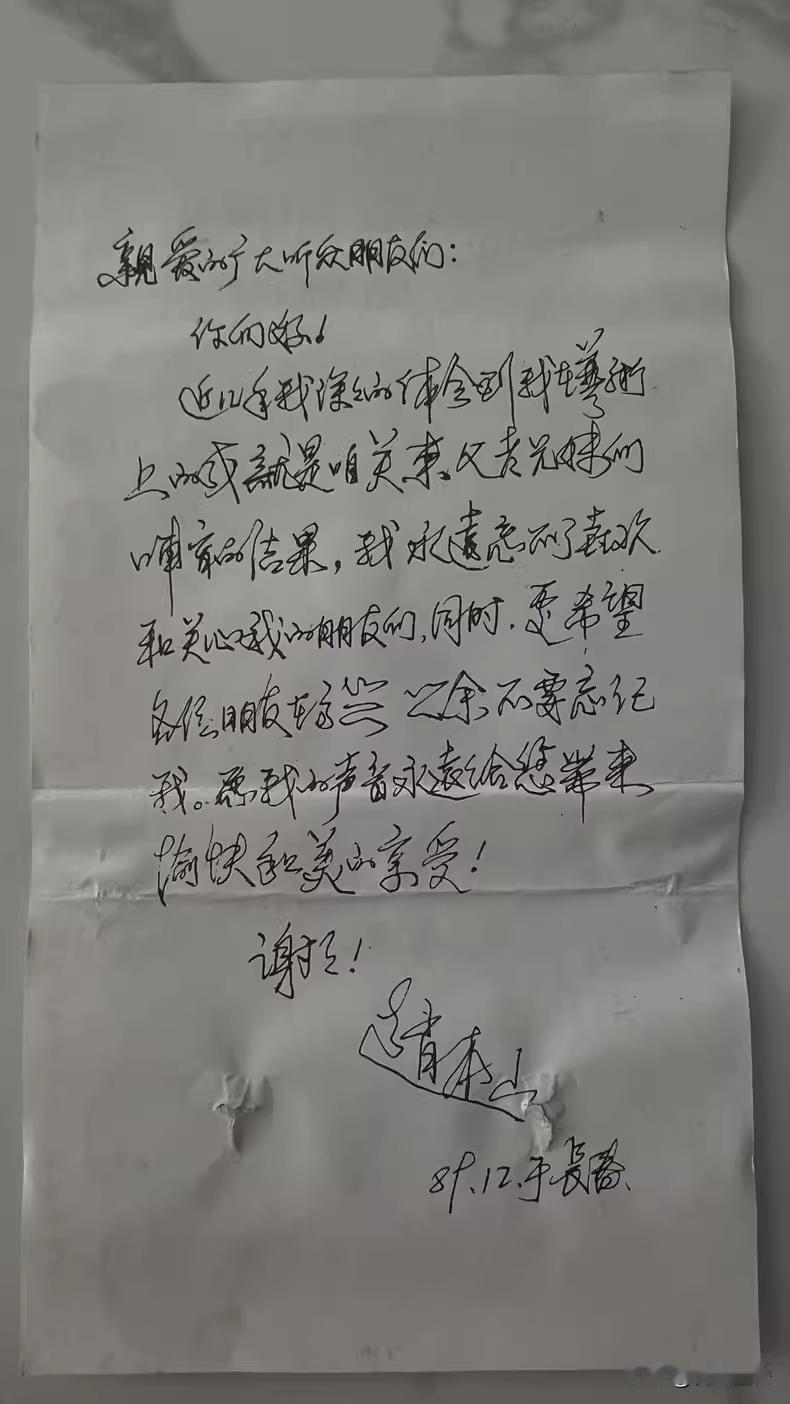 親爱的广大听众朋友们：
你们好！
近几年我深深的体会到我在藝術
上的成就是咱关東父老兄妹们
哺育的结果，我永遠忘不了喜欢
和关心我的朋友们，同时，更希望
各位朋友在高兴之余不要忘记
我。愿我的声音永遠给您带来
愉快和美的享受！
谢谢！
趙本山
89.12.于長春